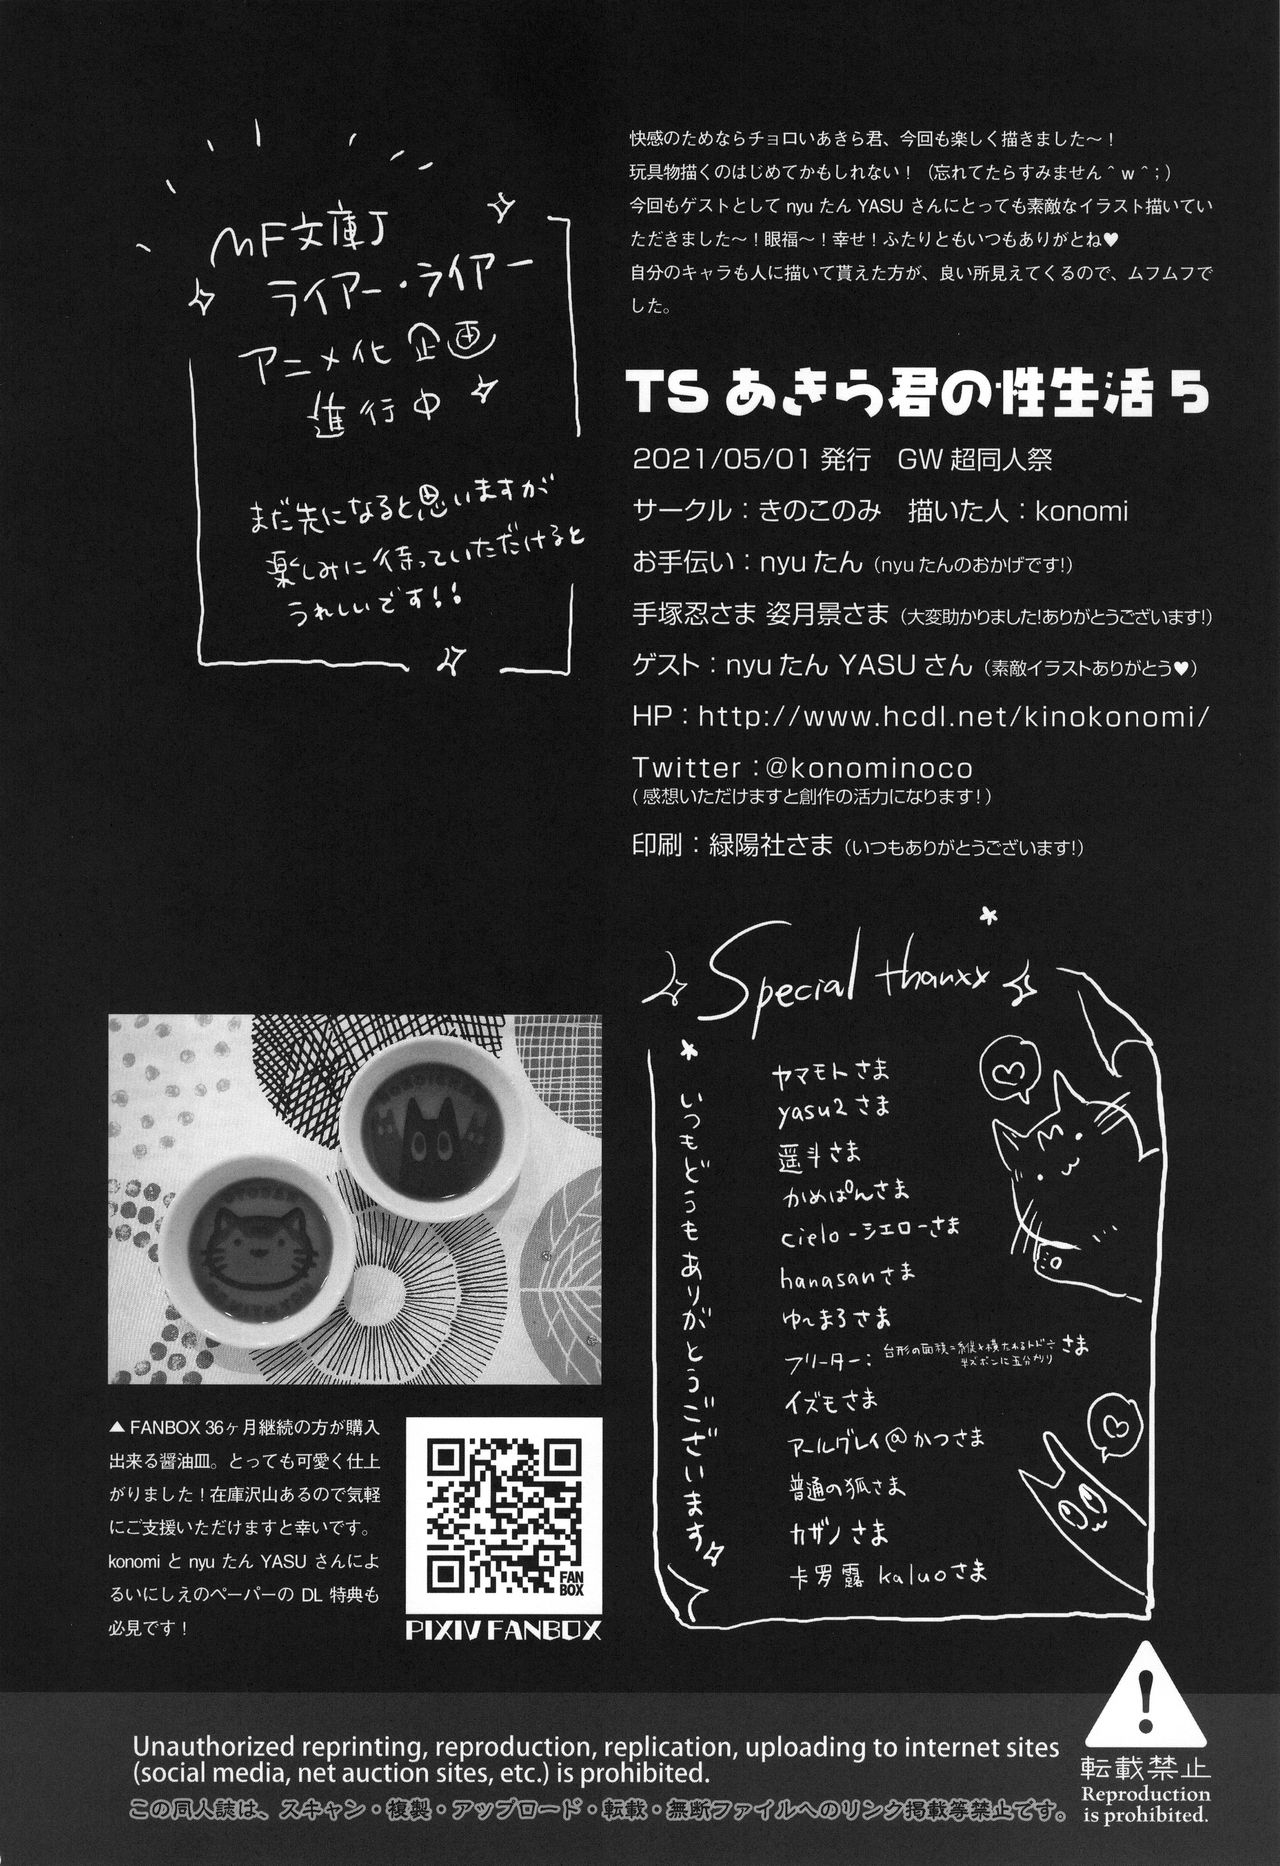 快感のためならチョロいあきら君、今回も楽しく描きました～！
玩具物描くのはじめてかもしれない！（忘れてたらすみません＾ｗ＾；）
今回もゲストとして nyu たん YASU さんにとっても素敵なイラスト描いてい
ただきました～！眼福～！幸せ！ふたりともいつもありがとね♥
自分のキャラも人に描いて貰えた方が、良い所見えてくるので、ムフムフで
した。
MF文庫J
ライアー・ライアー
アニメ化企画
進行中
まだ先になると思いますが
楽しみに待っていただけると
うれしいです!!
TSあきら君の性生活5
2021/05/01 発行　GW 超同人祭
サークル：きのこのみ　描いた人：konomi
お手伝い：nyuたん（nyuたんのおかげです!）
手塚忍さま 姿月景さま（大変助かりました!ありがとうございます!）
ゲスト：nyuたん YASUさん（素敵イラストありがとう♥）
HP：http://www.hcdl.net/kinokonomi/
Twitter：@konominoco
(感想いただけますと創作の活力になります!)
印刷：緑陽社さま（いつもありがとうございます!）
Special thanxx
いつもどうもありがとうございます
ヤマモトさま
yasu2さま
遥斗さま
かめぱんさま
cielo-シエローさま
hanasanさま
ゆ～まろさま
フリーター：台形の面積=縦と横たわるトド÷
半ズボンに五分刈りさま
イズモさま
アールグレイ@かつさま
普通の狐さま
カザノさま
卡罗露 kaluoさま
▲ FANBOX 36ヶ月継続の方が購入
出来る醤油皿。とっても可愛く仕上
がりました！在庫沢山あるので気軽
にご支援いただけますと幸いです。
konomi と nyu たん YASU さんによ
るいにしえのペーパーの DL 特典も
必見です！
FAN
BOX
PIXIV FANBOX
Unauthorized reprinting, reproduction, replication, uploading to internet sites
(social media, net auction sites, etc.) is prohibited.
この同人誌は、スキャン・複製・アップロード・転載・無断ファイルへのリンク掲載等禁止です。
転載禁止
Reproduction
is prohibited.